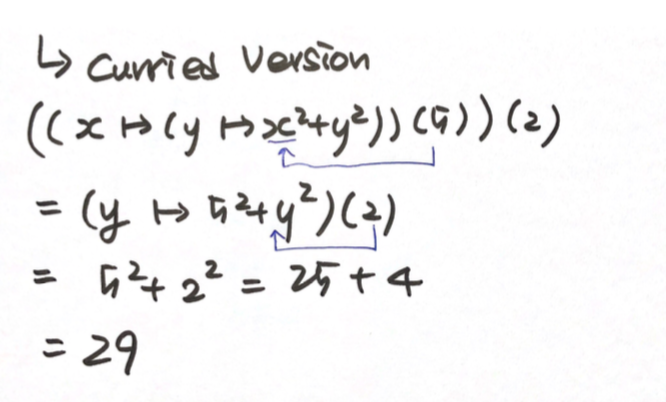 ↳ Curried Version
((x ↦ (y ↦ x²+y²))(5))(2)
= (y ↦ 5²+y²)(2)
= 5²+2² = 25+4
= 29